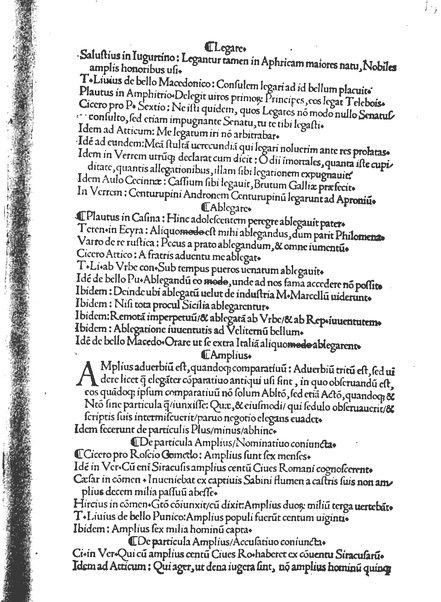 ¶Legare•
Salustius in Iugurtino: Legantur tamen in Aphricam maiores natu, Nobiles
amplis honoribus usi•
T•Liuius de bello Macedonico: Consulem legari ad id bellum placuit•
Plautus in Amphitrio•Delegit uiros primoꝝ Principes, eos legat Telebois•
Cicero pro P•Sextio: Ne isti quidem, quos Legares nō modo nullo Senatus
consulto, sed etiam impugnante Senatu, tu te tibi legasti•
Idem ad Atticum: Me legatum iri nō arbitrabar•
Idē ad eundem: Mea stulta uerecundia qui legari noluerim ante res prolatas•
Idem in Verrem utrūqꝫ declarat cum dicit: O dii īmortales, quanta iste cupi/
ditate, quantis allegationibus, illam sibi legationem expugnauit•
Idem Aulo Cecinnæ: Cassium sibi legauit, Brutum Galliæ præfecit•
In Verrem: Centurupini Andronem Centurupinū legarunt ad Aproniū•
¶Ablegare•
¶Plautus in Casina: Hinc adolescentem peregre ablegauit pater•
Teren•in Ecyra: Aliquomodo est mihi ablegandus, dum parit Philomena•
Varro de re rustica: Pecus a prato ablegandum, & omne iumentū•
Cicero Attico: A fratris aduentu me ablegat•
T•Li•ab Vrbe con•Sub tempus pueros uenatum ablegauit•
Idē de bello Pu•Ablegandū eo modo, unde ad nos fama accedere nō possit•
Ibidem: Deinde ubi ablegatū uelut de industria M•Marcellū uiderunt•
Ibidem: Nisi tota procul Sicilia ablegarentur•
Ibidem:Remotā imperpetuū/& ablegatā ab Vrbe/& ab Rep•iuuentutem•
Ibidem: Ablegatione iuuentutis ad Veliternū bellum•
Idē de bello Macedo•Orare ut se extra Italiā aliquomodo ablegarent•
¶Amplius•
AMplius aduerbiū est, quandoqꝫ comparatiuū: Aduerbiū tritū est, sed ui
dere licet qꝫ elegāter cōparatiuo antiqui usi sint, in quo obseruandū est,
eos quādoqꝫ ipsum comparatiuū nō solum Ablfō, sed etiā Actō, quandoqꝫ &
Nctō sine particula qꝫ/iunxisse: Quæ, & eiusmodi/ qui sedulo obseruauerit/&
scriptis suis intermiscuerit/paruo negotio elegans euadet•
Idem fecerunt de particulis Plus/minus/abhinc•
¶De particula Amplius/Nominatiuo coniuncta•
¶Cicero pro Roscio Comœdo: Amplius sunt sex menses•
Idē in Ver•Cū eni Siracusis amplius centū Ciues Romani cognoscerent•
Cæsar in cōmen•Inueniebat ex captiuis Sabini flumen a castris suis non am/
plius decem milia passuū abesse•
Hircius in cōmen•Gtō cōiunxit/cū dixit: Amplius duoꝝ miliū terga uertebāt•
T•Liuius de bello Punico:Amplius populi fuerūt centum uiginti•
Ibidem: Amplius sex milia hominū capta•
¶De particula Amplius/Accusatiuo coniuncta•
Ci•in Ver•Qui cū amplius centū Ciues Ro•haberet ex cōuentu Siracusarū•
Idem ad Atticum: Qui ager, ut dena iugera sint, nō amplius hominū quinqꝫ